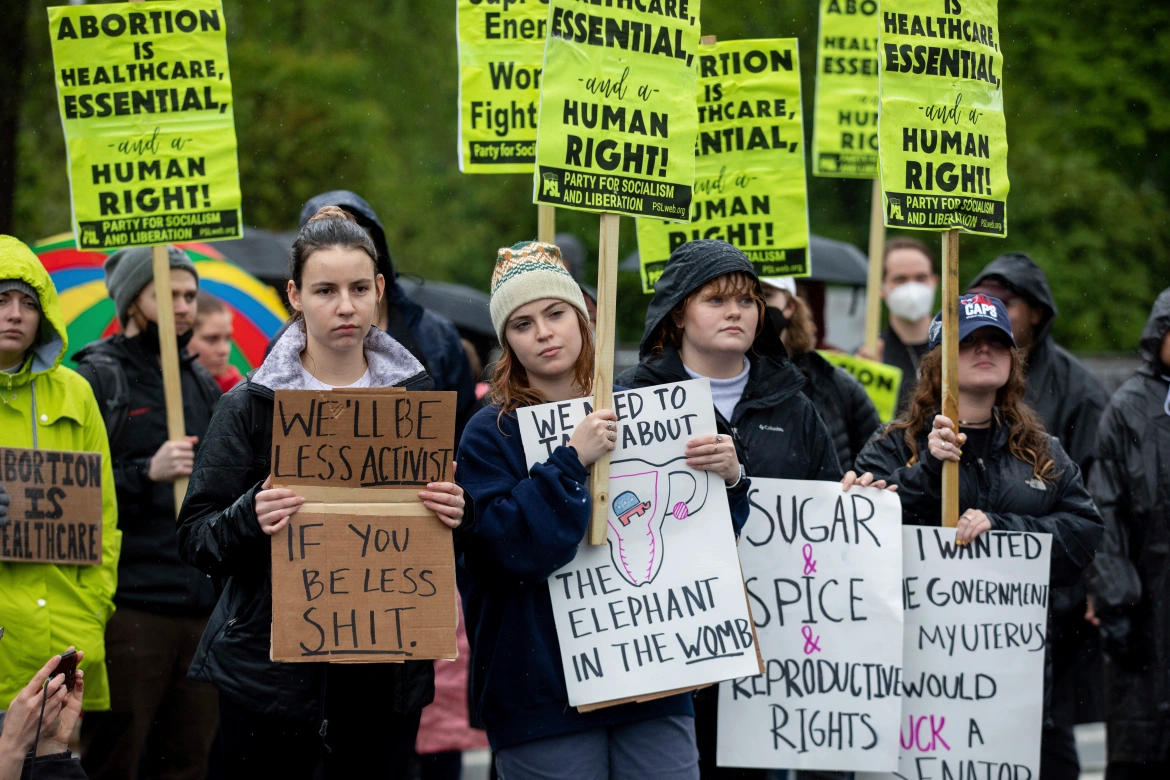 ABORTION
IS
HEALTHCARE,
ESSENTIAL,
-and a-
HUMAN
RIGHT!
PSL
PARTY FOR SOCIALISM
AND LIBERATION
PSLweb.org
Ener
Wor
Fight
Party for Soci
HEALTHCARE,
ESSENTIAL,
-and a-
HUMAN
RIGHT!
PSL
PARTY FOR SOCIALISM
AND LIBERATION
PSLweb.org
RTION
IS
THCARE,
ENTIAL,
and a-
UMAN
RIGHT!
ABO
HEAL
ESSE
HU
RIG
IS
HEALTHCARE,
ESSENTIAL,
-and a-
HUMAN
RIGHT!
PSL
PARTY FOR SOCIALISM
AND LIBERATION
PSLweb.org
CAPS
ION
ABORTION
IS
HEALTHCARE
WE'LL BE
LESS ACTIVIST
IF YOU
BE LESS
SHIT.
WE NEED TO
ABOUT
THE
ELEPHANT
IN THE WOMB
Columbia
SUGAR
&
SPICE
&
REPRODUCTIVE
RIGHTS
I WANTED
E GOVERNMENT
MY UTERUS
WOULD
UCK A
ENATOR